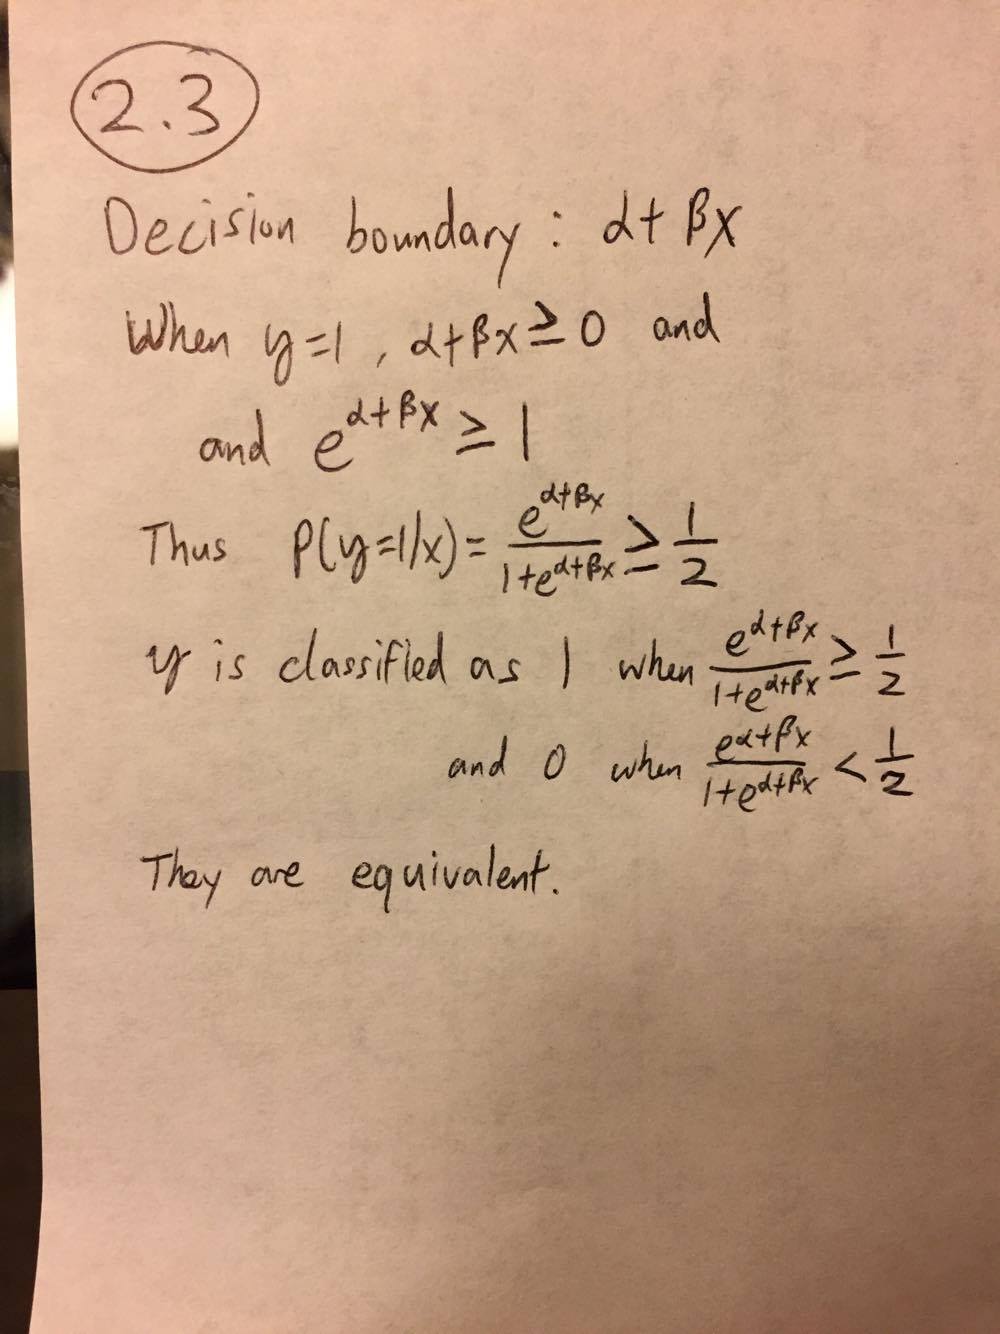 2.3
Decision boundary: α+βx
When y=1, α+βx≥0 and
and e^{α+βx} ≥ 1
Thus P(y=1/x) = \frac{e^{α+βx}}{1+e^{α+βx}} ≥ \frac{1}{2}
y is classified as 1 when \frac{e^{α+βx}}{1+e^{α+βx}} ≥ \frac{1}{2}
and 0 when \frac{e^{α+βx}}{1+e^{α+βx}} < \frac{1}{2}
They are equivalent.